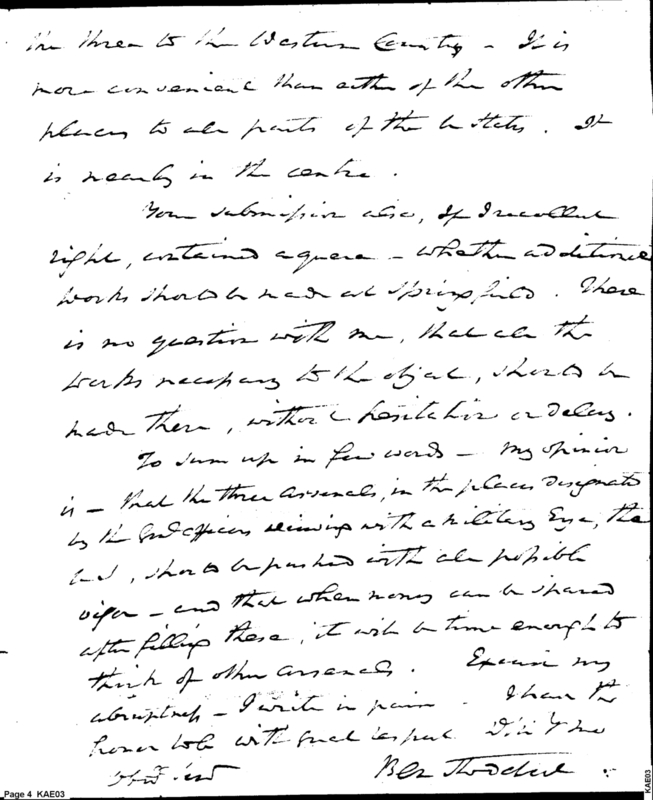 the three to the Western Country - It is
more convenient than either of the other
places to all parts of the U States. It
is nearly in the centre.
Your submission also, If I recollect
right, contained a quere - whether additional
works should be made at Springfield. There
is no question with me, that all the
works necessary to the object, should be
made there, without hesitation or delay.
To sum up in few words - my opinion
is - that the three arsenals, in the places designated
by the Genl officers viewing with a military Eye, the
, should be pushed with all possible
vigor - and that when money can be spared
after filling these, it will be time enough to
think of other arsenals. Excuse my
abruptness - I write in pain. I have the
honor to be with great respect
Ben Stoddert
Page 4 KAE03
KAE03